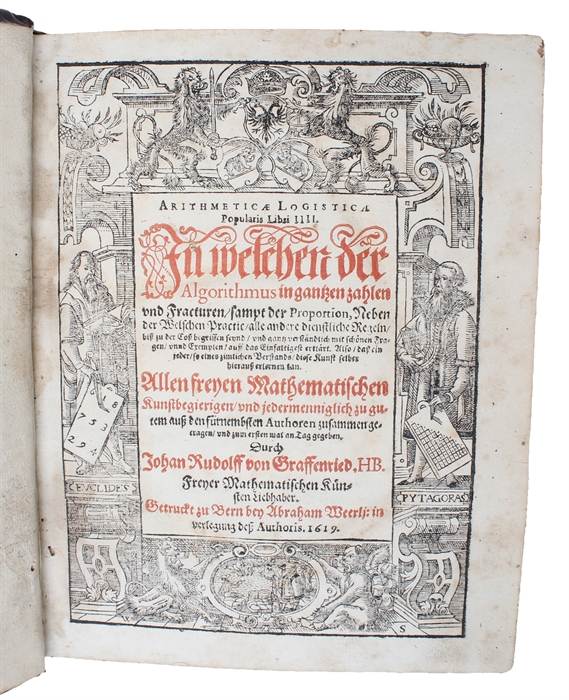 ARITHMETICÆ LOGISTICÆ
Popularis Libri IIII.
In welchen der
Algorithmus in gantzen zahlen
vnd Fracturen / sampt der Proportion, Neben
der Welschen Practic / alle andere dienstliche Regeln /
biß zu der Coß begriffen seynd / vnd gantz verständlich mit schönen Fra-
gen / vnnd Exemplen / auff das Einfaltigest erklärt. Also / daß ein
jeder / so eines zimlichen Verstands / diese Kunst selber
hierauß erlernen kan.
Allen freyen Mathematischen
Kunstbegierigen / vnd jedermenniglich zu gu-
tem auß den fürnembsten Authoren zusammen ge-
tragen / vnd zum ersten mal an Tag gegeben,
Durch
Johan Rudolff von Graffenried. HB.
Freyer Mathematischen Kün-
sten Liebhaber.
Getruckt zu Bern bey Abraham Weerli: in
verlegung deß Authoris. 1619.
EVCLIDES
PYTAGORAS
S